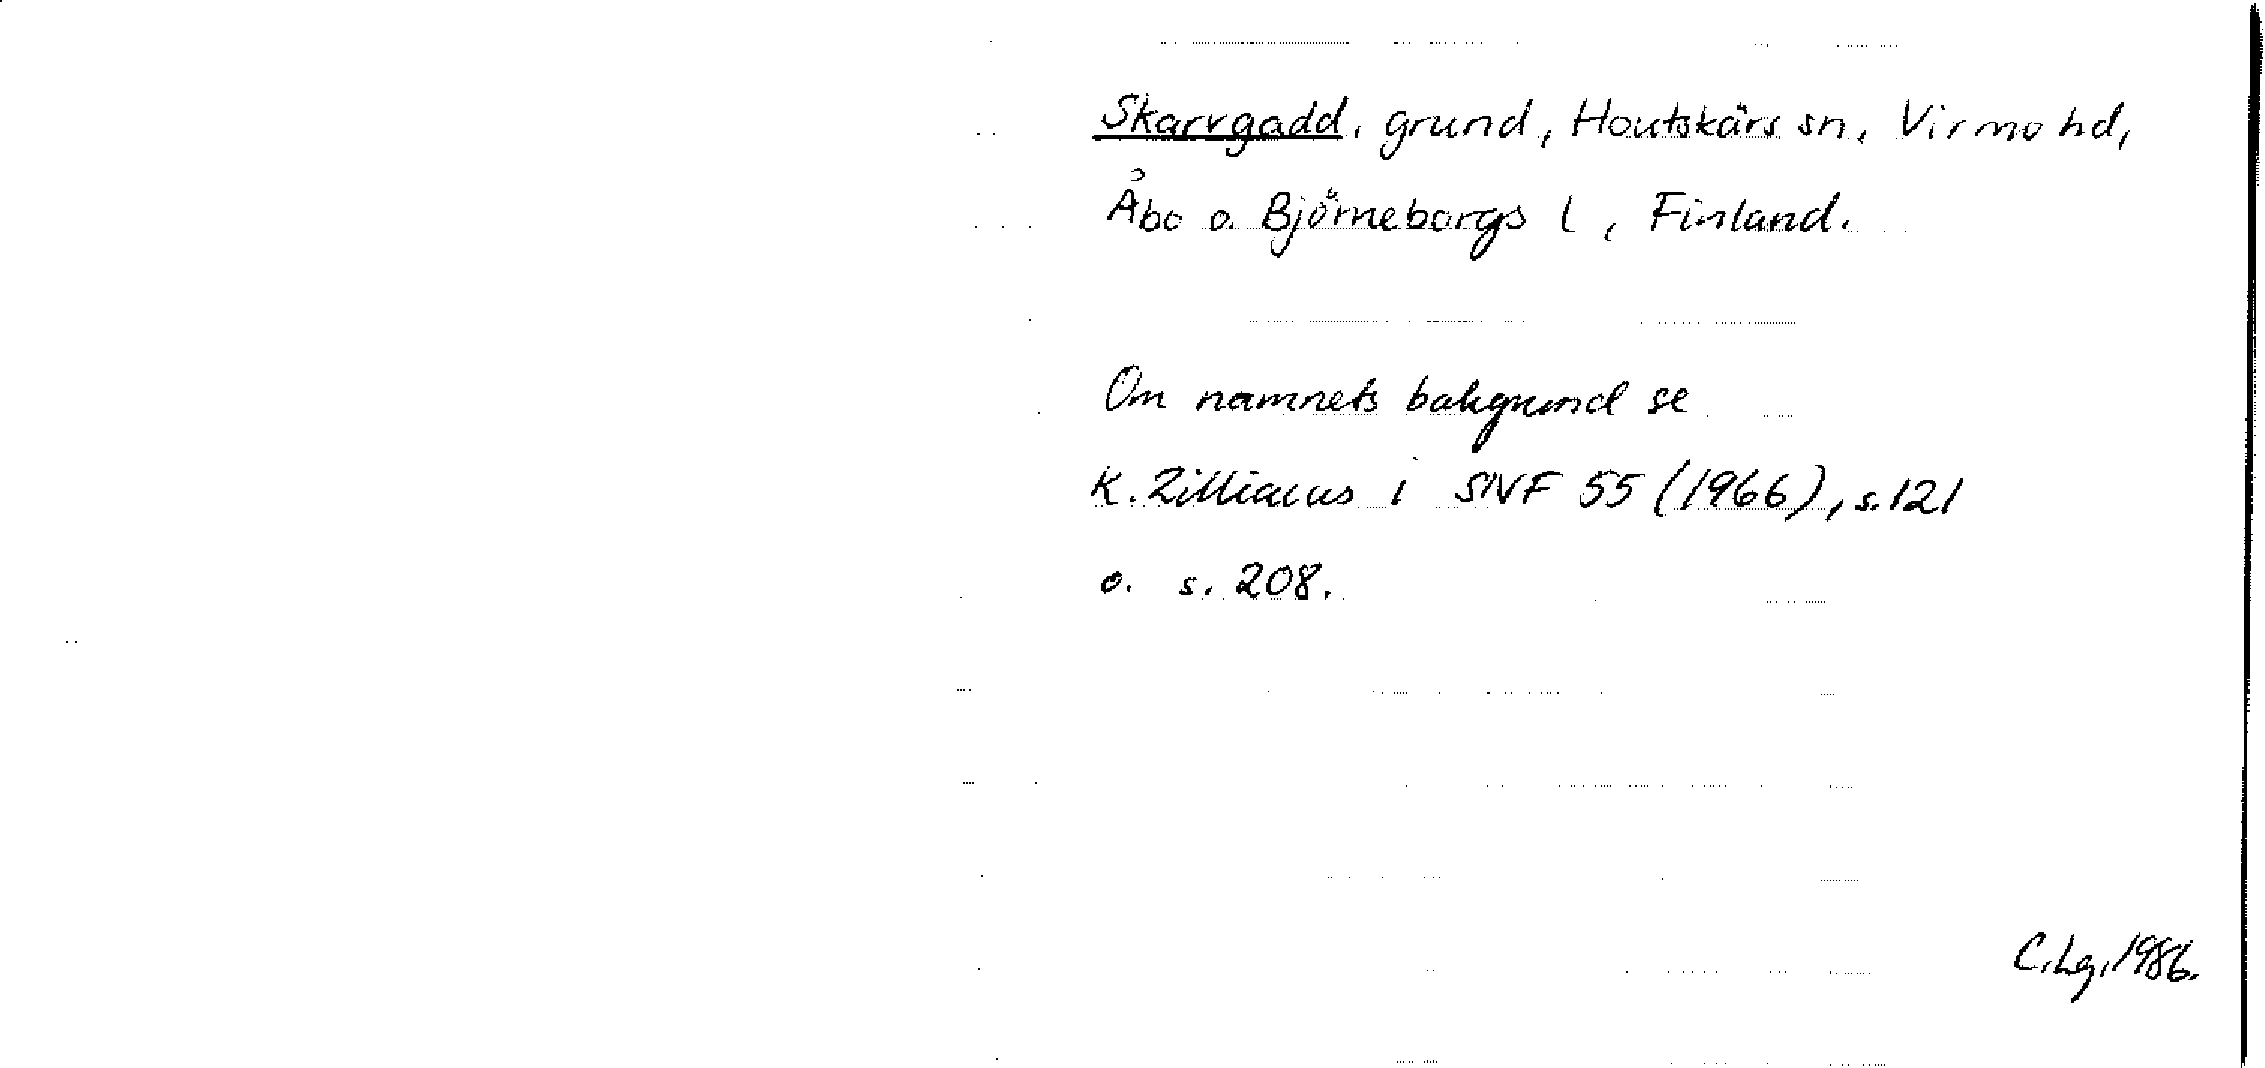 Skarvgadd, grund, Houtskärs sn, Virmo hd,
Åbo o. Björneborgs l, Finland.
Om namnets bakgrund se
K. Zilliacus i SNF 55 (1966), s. 121
o. s. 208.
C. Lg. 1986.